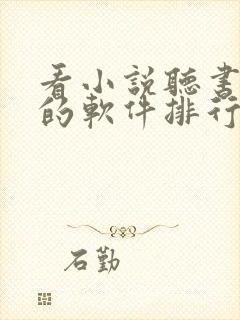 看小説聽書
的軟件排行
石勤